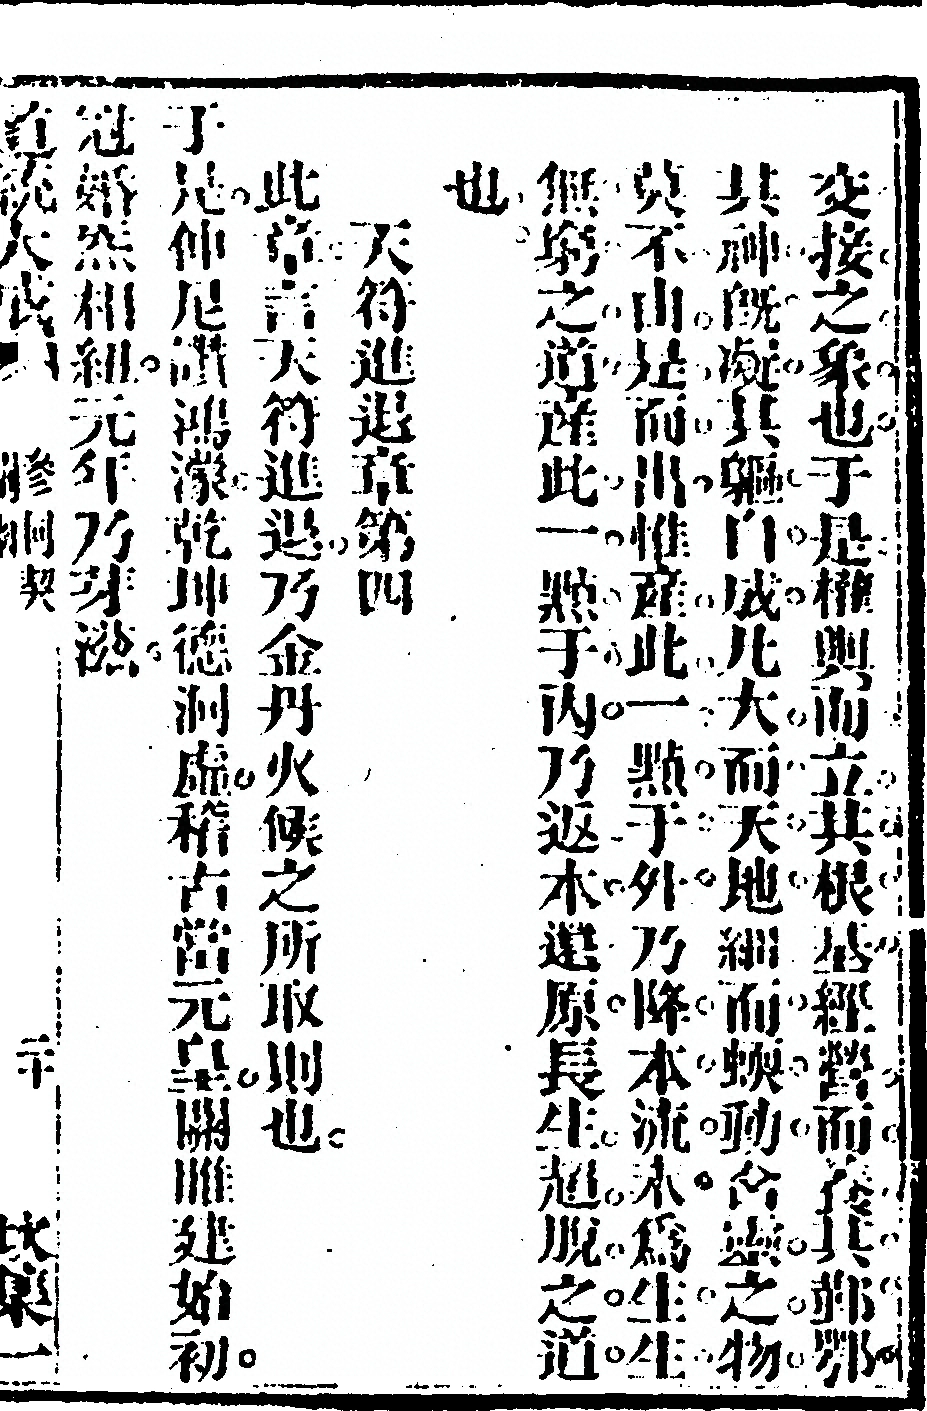 交接之象也于是權輿而立其根基經營而養其鄞鄂
其神既凝其軀自成凡大而天地細而蝡動含靈之物
莫不由是而出惟產此一點于外乃降本流末為生生
無窮之道產此一點于內乃返本還原長生超脫之道
也
天符進退章第四
此章言天符進退乃金丹火候之所取則也
于是仲尼讚鴻濛乾坤德洞虛稽古當元皇關雎建始初
冠婚炁相紐元年乃芽滋
道統大成
參同契
二十
坎集一